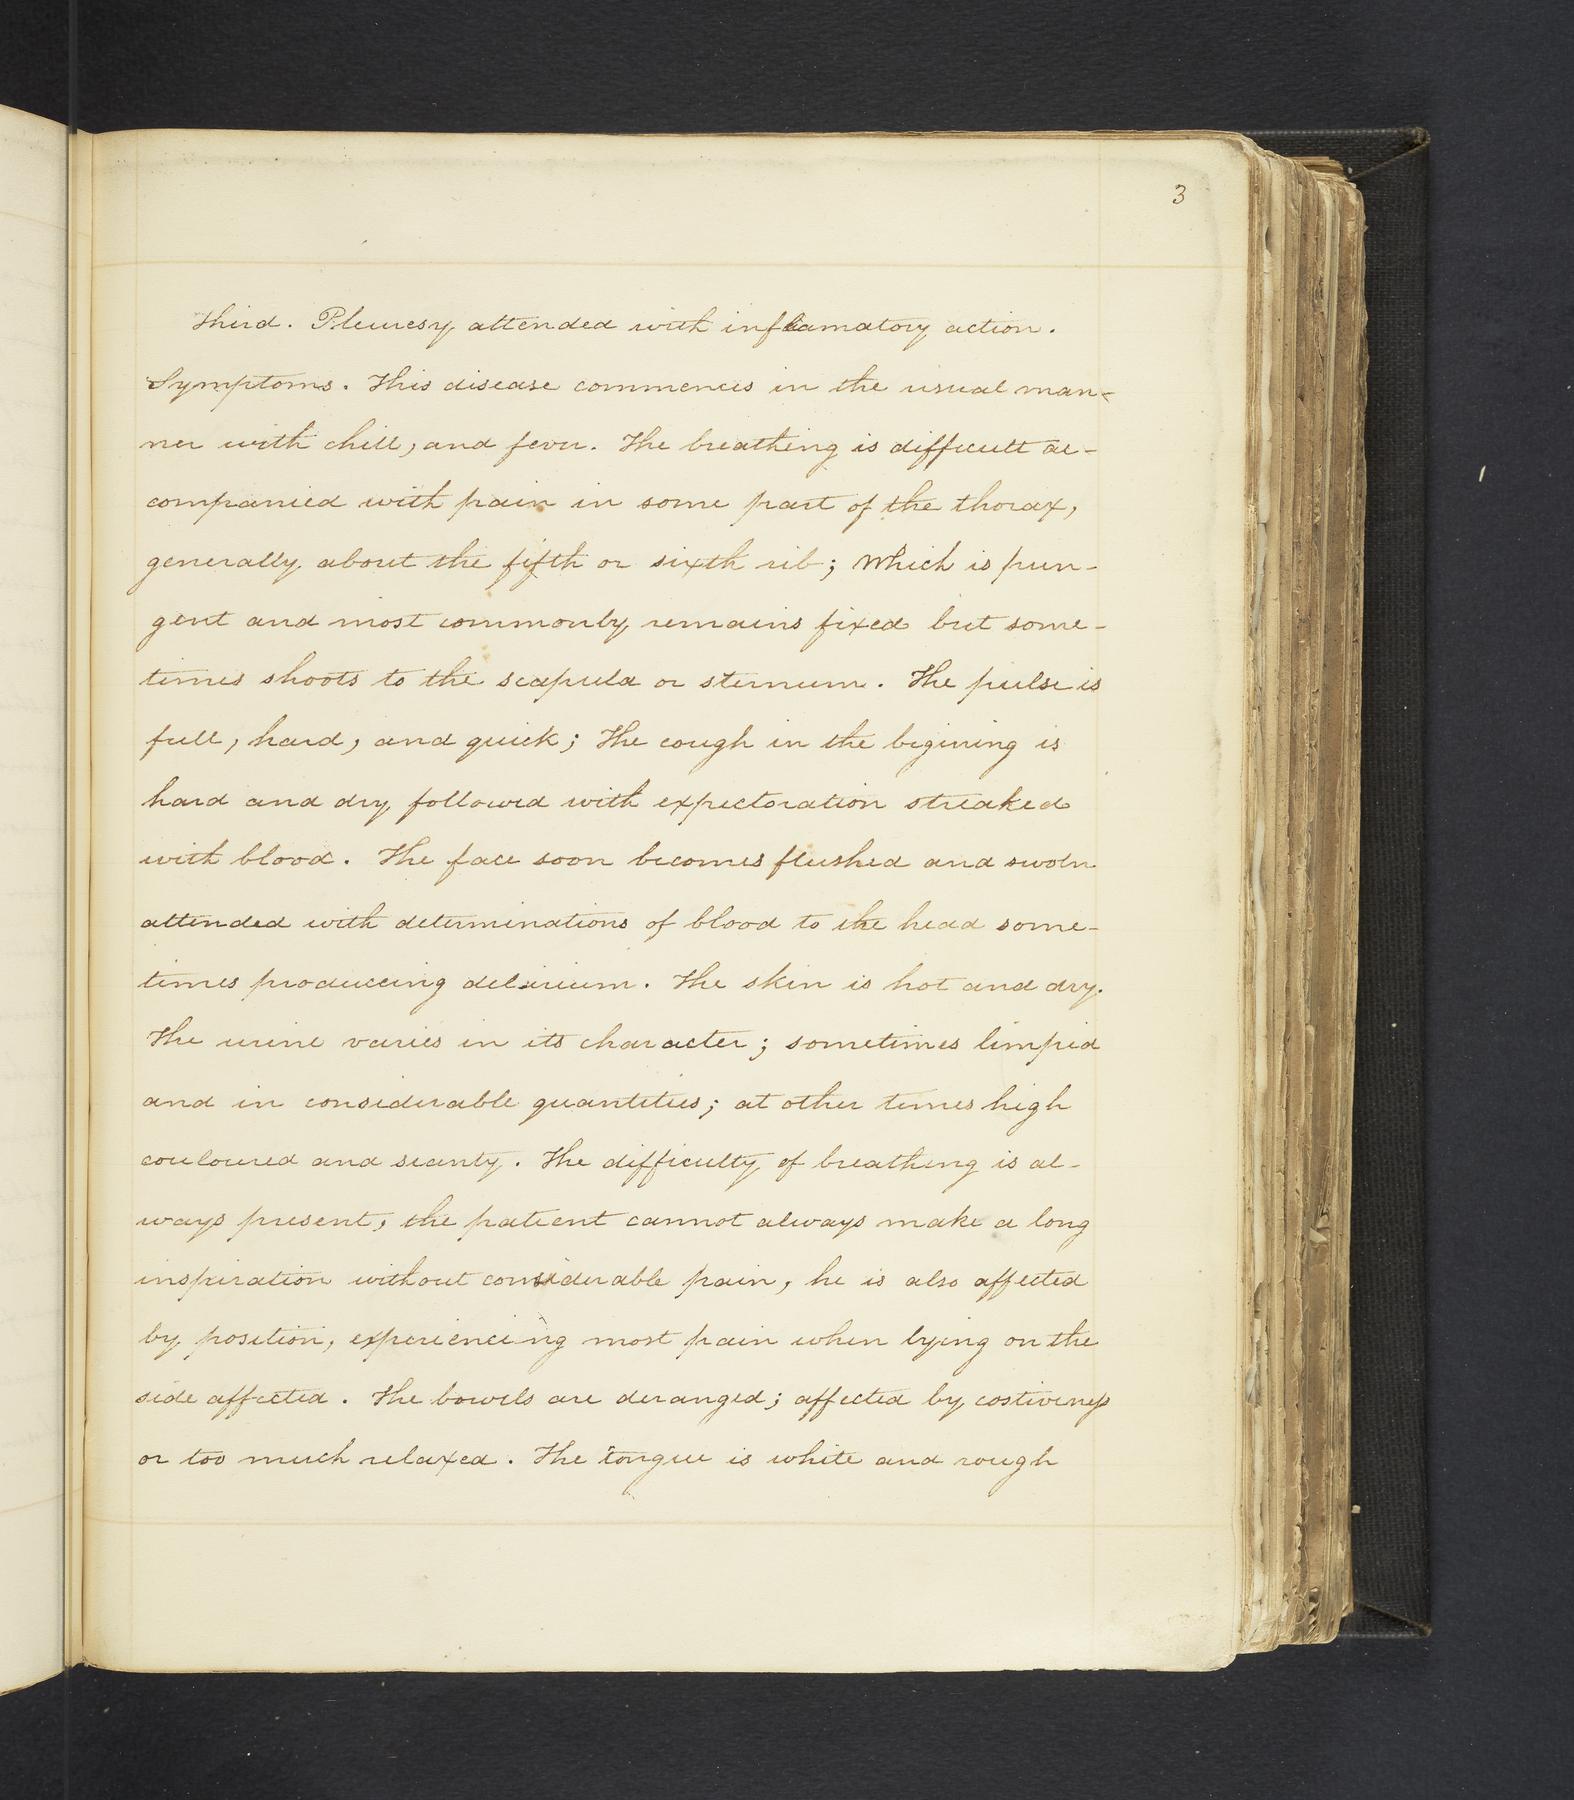 3
Third. Pleuresy attended with inflamatory action.
Symptoms. This disease commences in the usual man-
ner with chill, and fever. The breathing is difficult ac-
companied with pain in some part of the thorax,
generally about the fifth or sixth rib; Which is pun-
gent and most commonly remains fixed but some-
times shoots to the scapula or sternum. The pulse is
full, hard, and quick; The cough in the begining is
hard and dry followed with expectoration streaked
with blood. The face soon becomes flushed and swoln
attended with determinations of blood to the head some-
times producing delirium. The skin is hot and dry.
The urine varies in its character; sometimes limpid
and in considerable quantities; at other times high
couloured and scanty. The difficulty of breathing is al-
ways present, the patient cannot always make a long
inspiration without considerable pain, he is also affected
by position, experiencing most pain when lying on the
side affected. The bowels are deranged; affected by costiveness
or too much relaxed. The tongue is white and rough